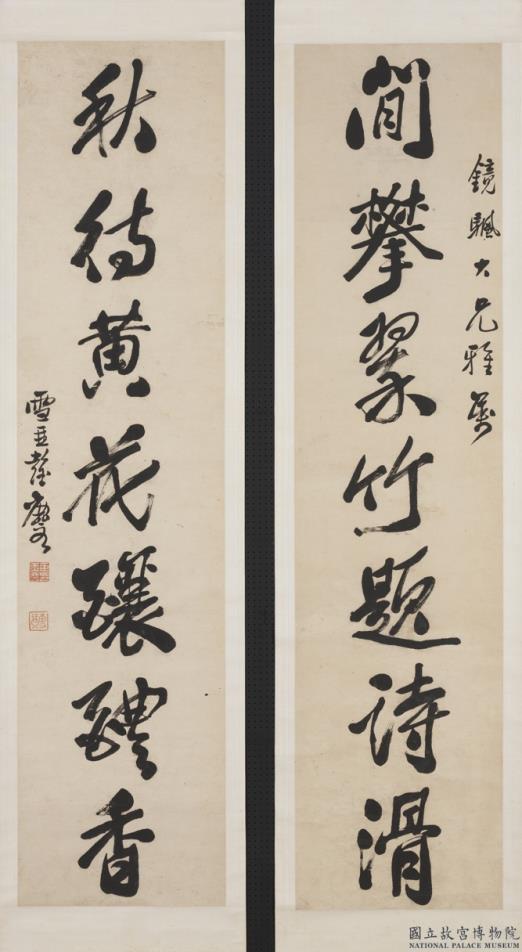 閒攀翠竹題詩滑
鏡颿大兄雅屬
秋待黃花釀醴香
雪琴彭玉麐
國立故宮博物院
NATIONAL PALACE MUSEUM